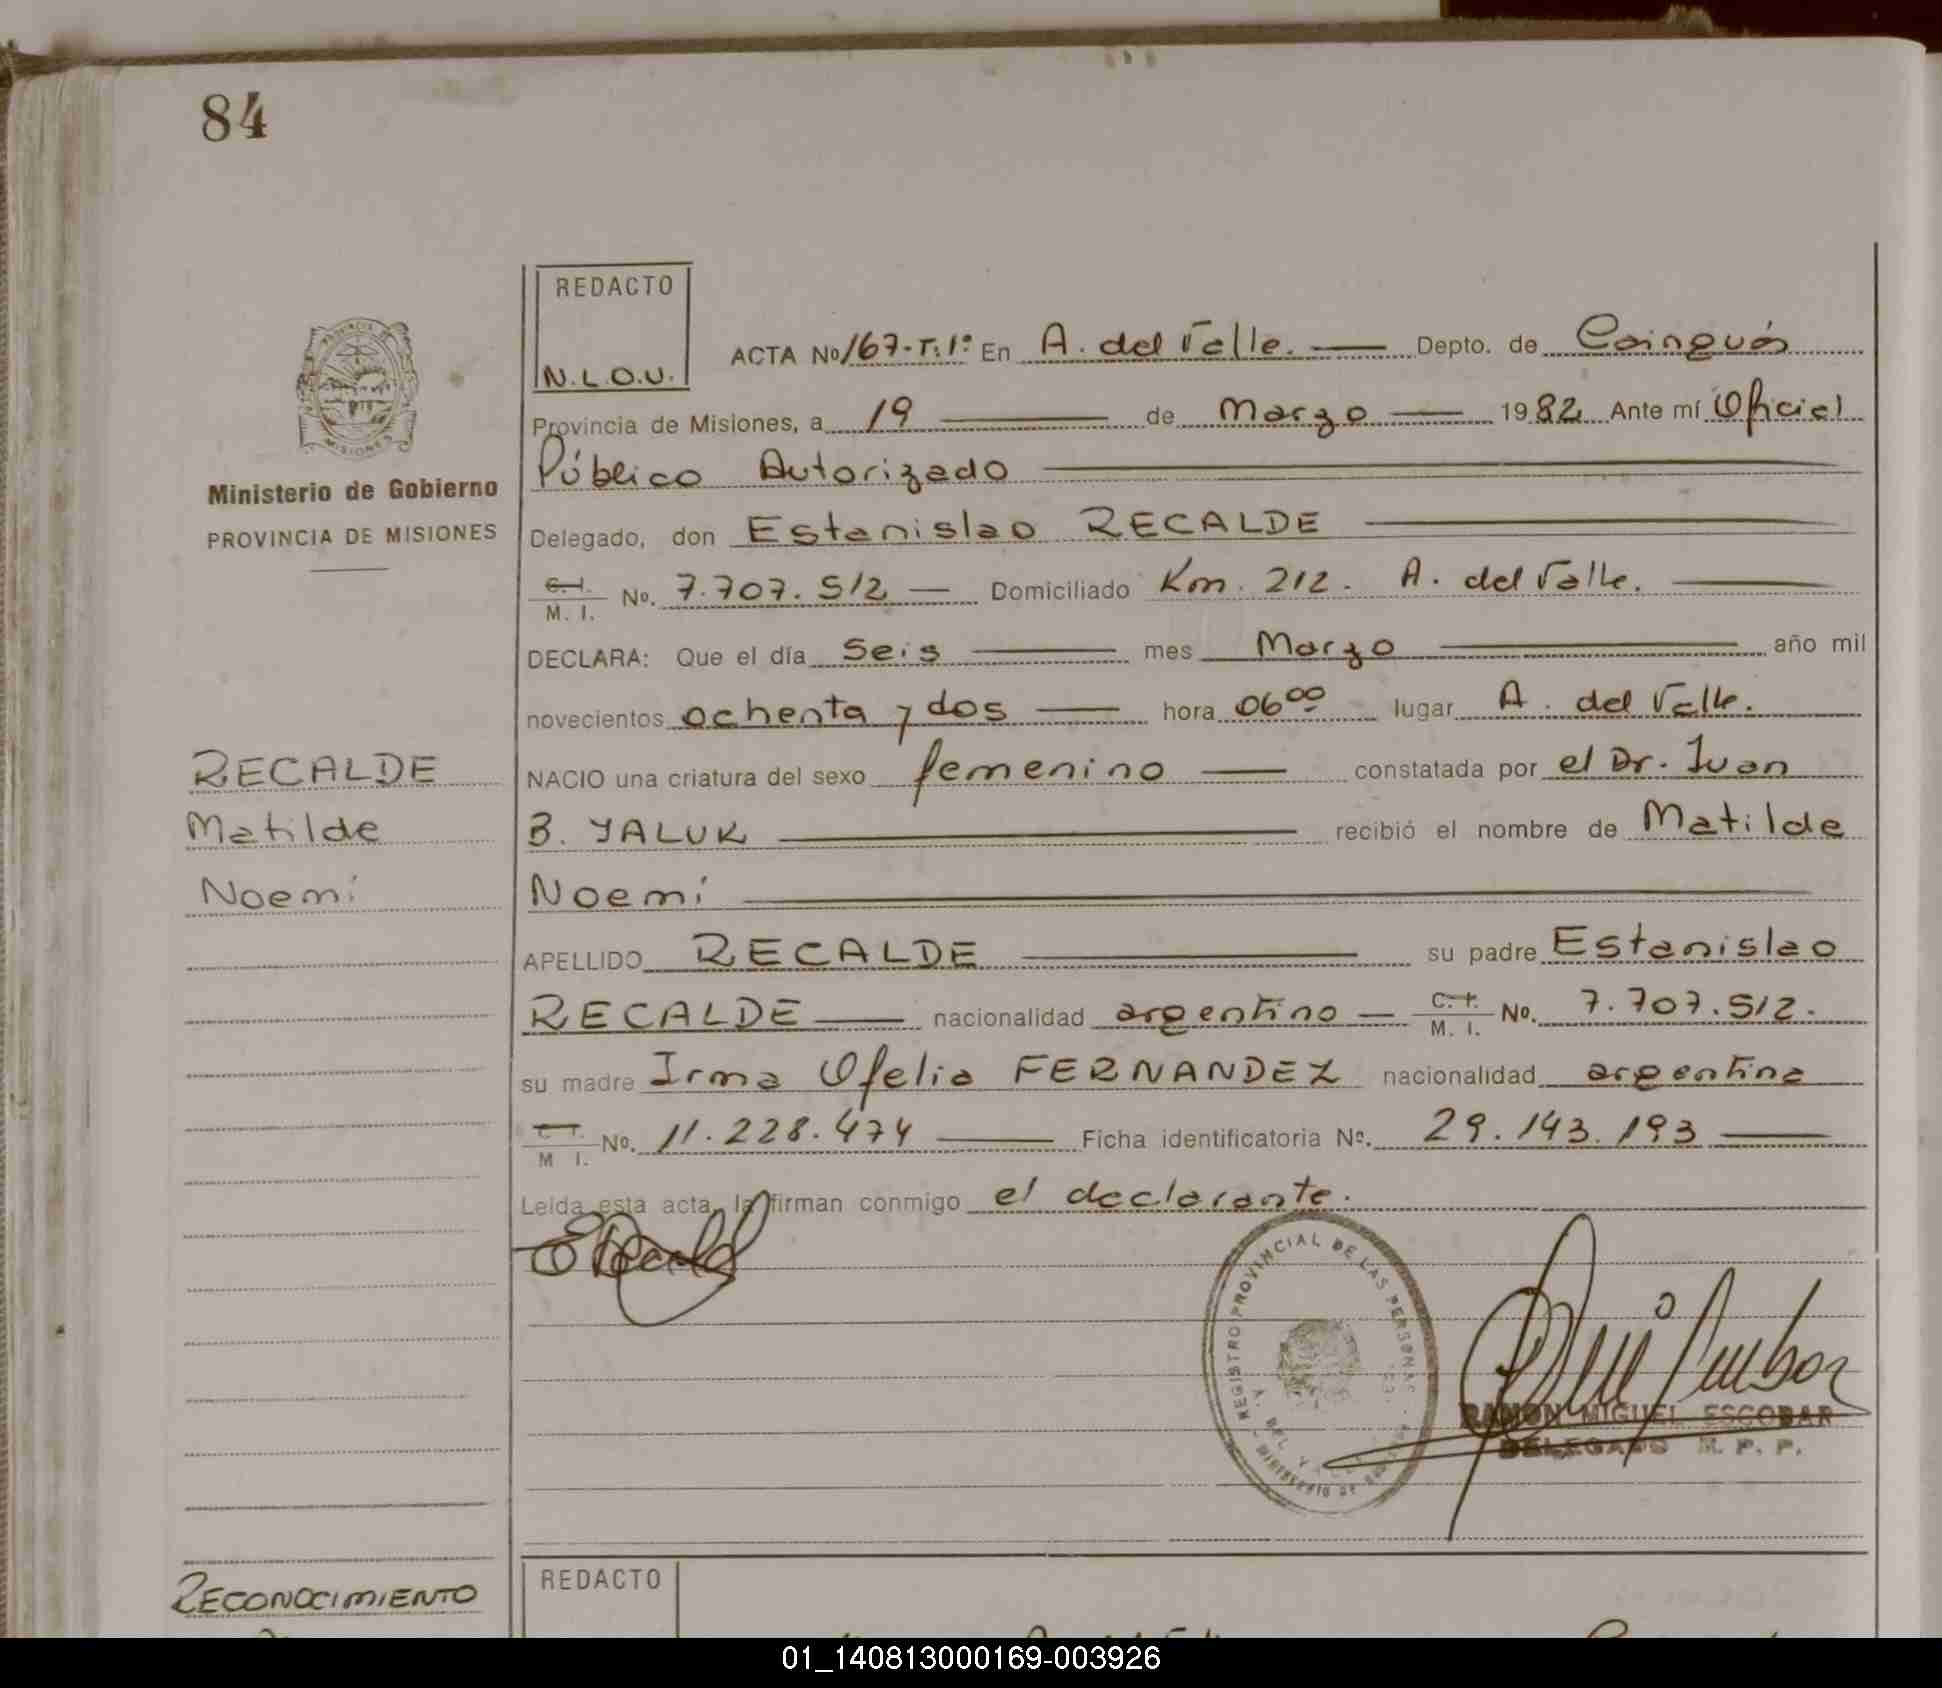 84
REDACTO
N.L.O.U.
ACTA No 167-T.1º En A. del Valle. Depto. de Cainguás
Provincia de Misiones, a 19 de Marzo 1982 Ante mí Oficial
Público Autorizado
PROVINCIA DE
MISIONES
Ministerio de Gobierno
PROVINCIA DE MISIONES
Delegado, don Estanislao RECALDE
C.I.
M. I. No. 7.707.512 Domiciliado Km. 212. A. del Valle.
DECLARA: Que el día Seis mes Marzo año mil
novecientos ochenta y dos hora 06⁰⁰ lugar A. del Valle.
RECALDE
Matilde
Noemí
NACIO una criatura del sexo femenino constatada por el Dr. Juan
B. YALUK recibió el nombre de Matilde
Noemí
APELLIDO RECALDE su padre Estanislao
RECALDE nacionalidad argentino C.I.
M. I. No. 7.707.512.
su madre Irma Ofelia FERNANDEZ nacionalidad argentina
C.I.
M I. No. 11.228.474 Ficha identificatoria Nº. 29.143.193
Leída esta acta, la firman conmigo el declarante.
REGISTRO PROVINCIAL DE LAS PERSONAS
A. DEL VALLE
RAMON MIGUEL ESCOBAR
DELEGADO R. P. P.
RECONOCIMIENTO
REDACTO
01_140813000169-003926